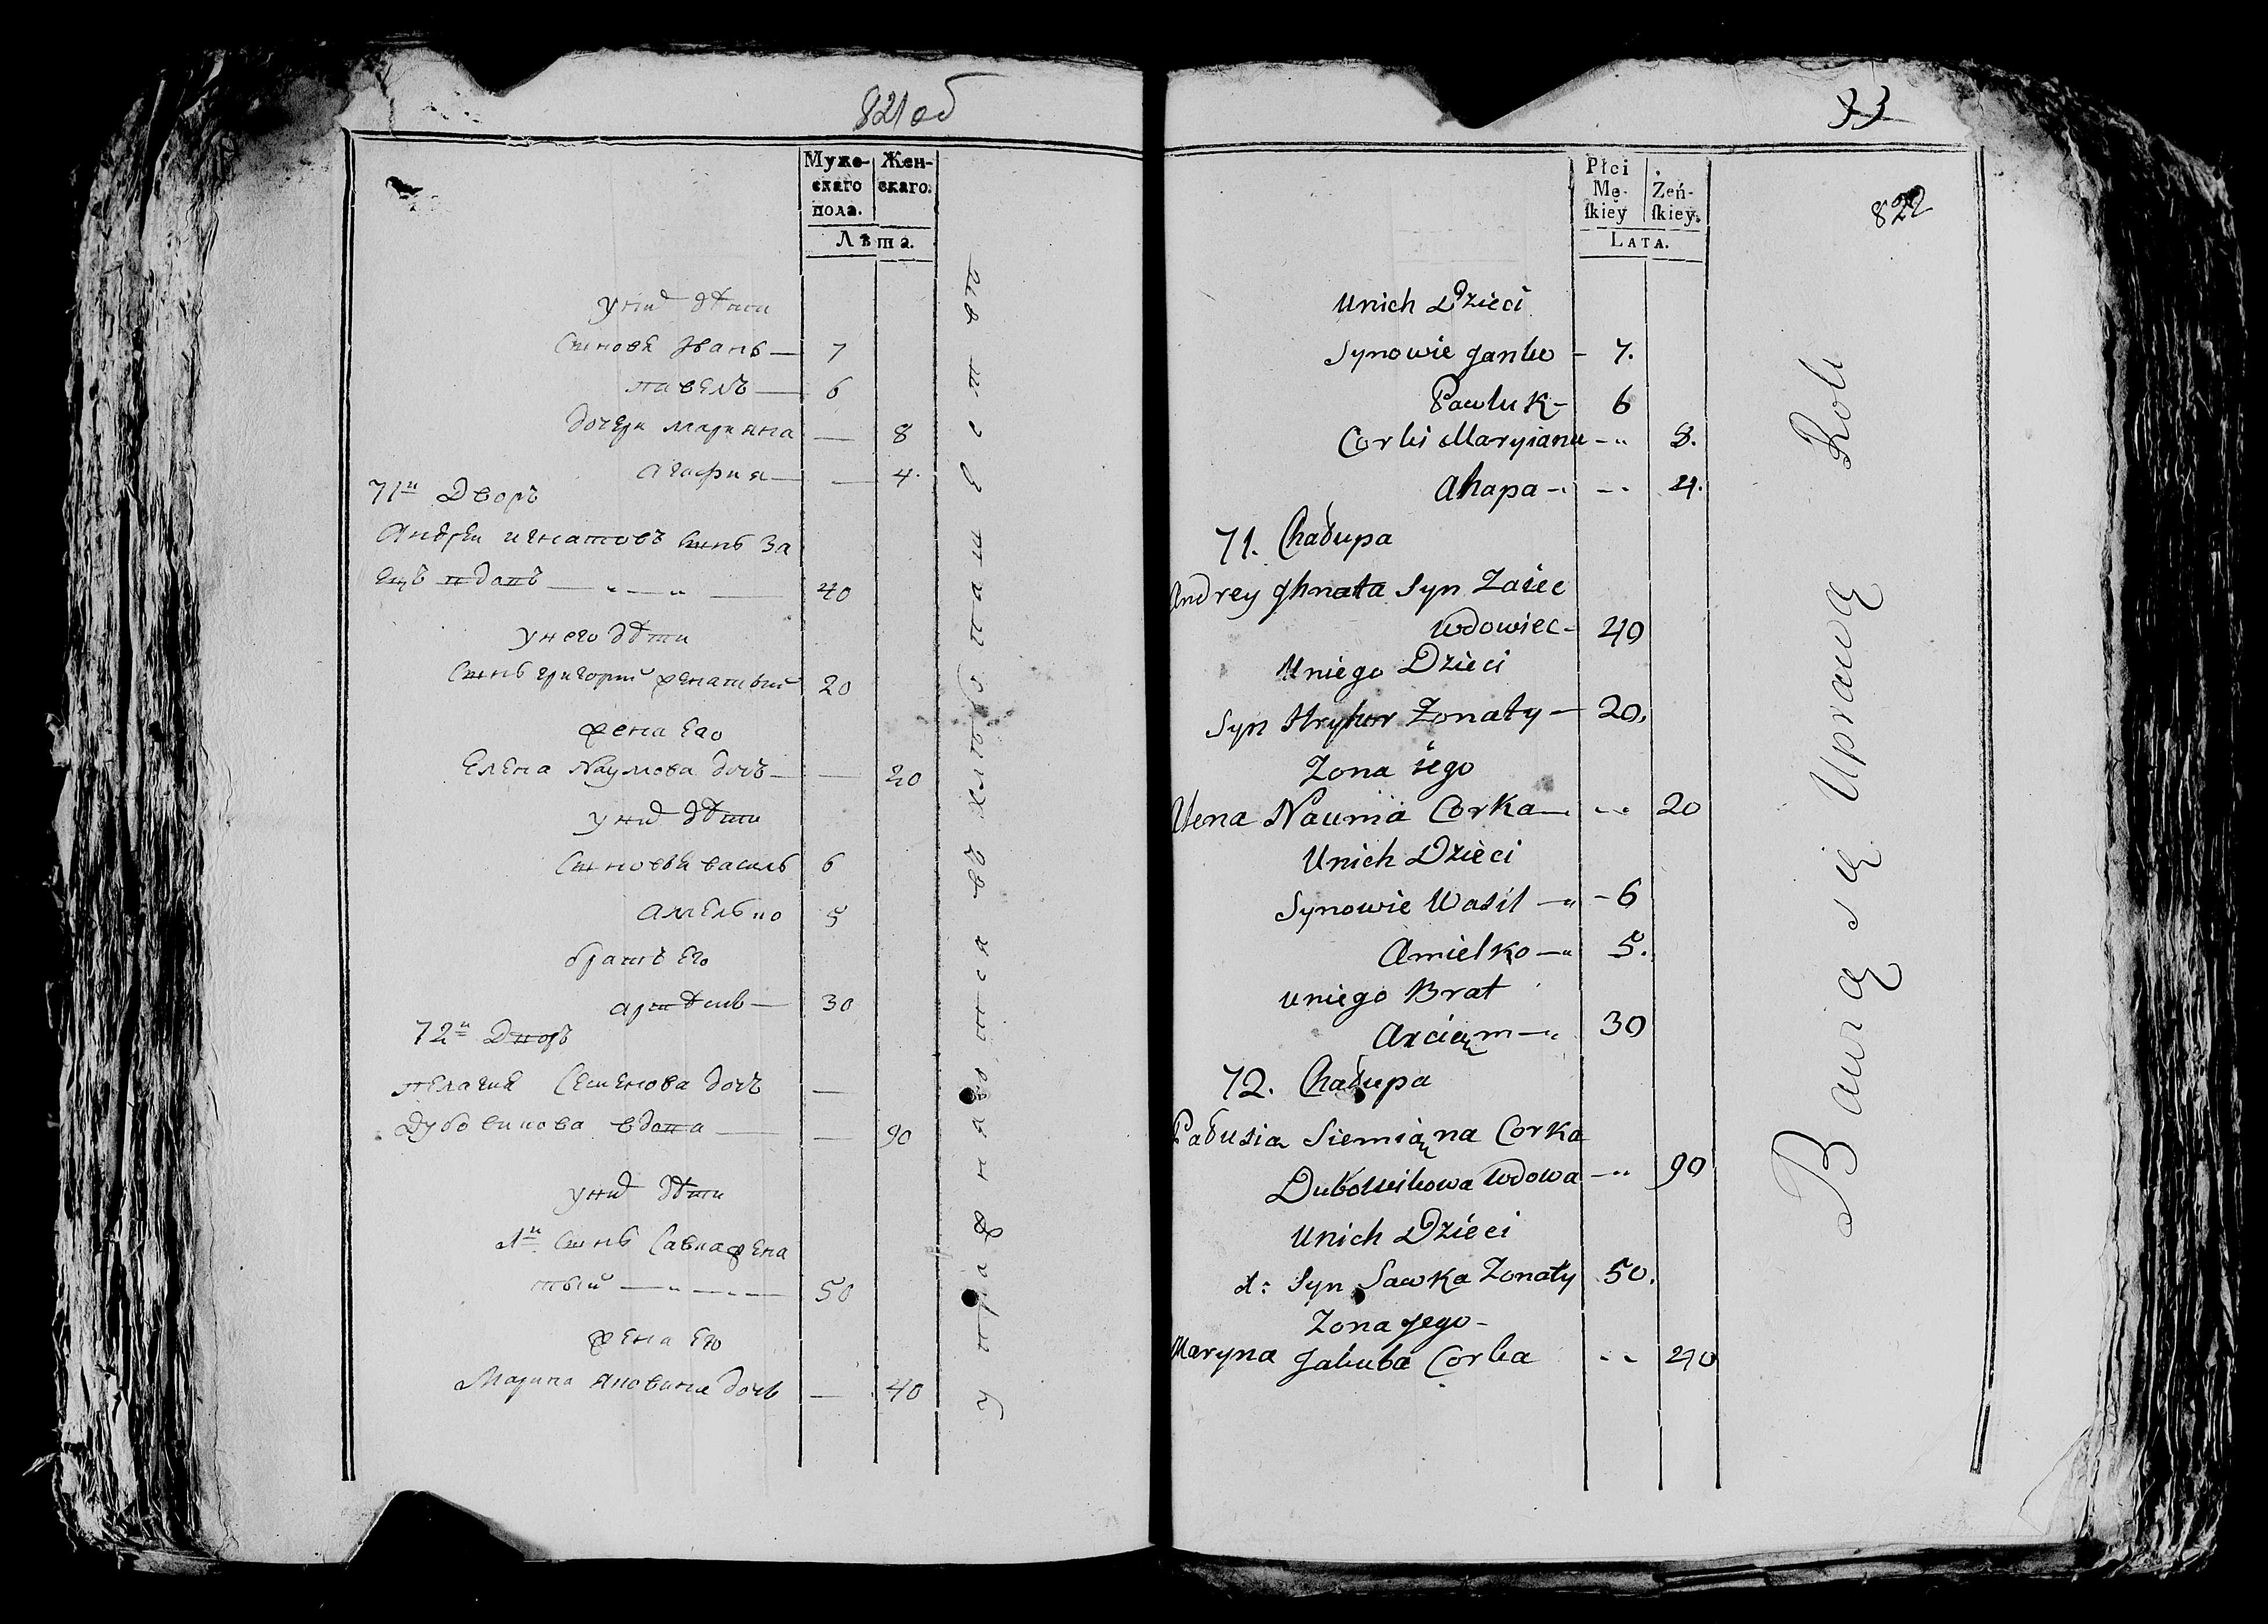 821 об
Муже- Жен-
скаго скаго.
пола.
Лѣта.
у них дѣти
Сыновя Иванъ — 7
павелъ — 6
дочери марияна — 8
агафия — — 4.
71й Дворъ
Андреи игнатовъ сынъ За
ецъ вдовъ — „ — „ — 40
у него дѣти
Сынъ григории женатыи 20
жена Его
Елена Наумова дочъ — — 20
у них дѣти
Сыновя василь 6
амелько 5
братъ Его
артѣмъ — 30
72й Дворъ
пелагия Семенова дочъ —
Дубовикова вдова — — 90
у них дѣти
1й Сынъ Савка жена
тыи — „ — „ — 50
жена Его
Марина Яковвина дочь — 40
упражняются въ хлѣбопашествѣ
33
822
Płci
Mę- Żeń-
skiey skiey.
LATA.
Unich Dzieci
Synowie Janko – 7.
Pawluk – 6
Corki Maryiana – „ 8.
Ahapa – . – . 4.
71. Chałupa
Andrey Jhnata Syn Zaiec
Wdowiec – 40
Uniego Dzieci
Syn Hryhor Zonaty – 20.
Zona iego
Ulena Nauma Corka – . – . 20
Unich Dzieci
Synowie Wasil – „ – 6
Amielko – „ 5.
uniego Brat
Arciąm – „ 30
72. Chałupa
Pałusia Siemiąna Corka
Dubowikowa Wdowa – „ 90
Unich Dzieci
1: Syn Sawka Zonaty 50.
Zona Jego –
Maryna Jakuba Corka – – 40
Bawią się Uprawą Roli